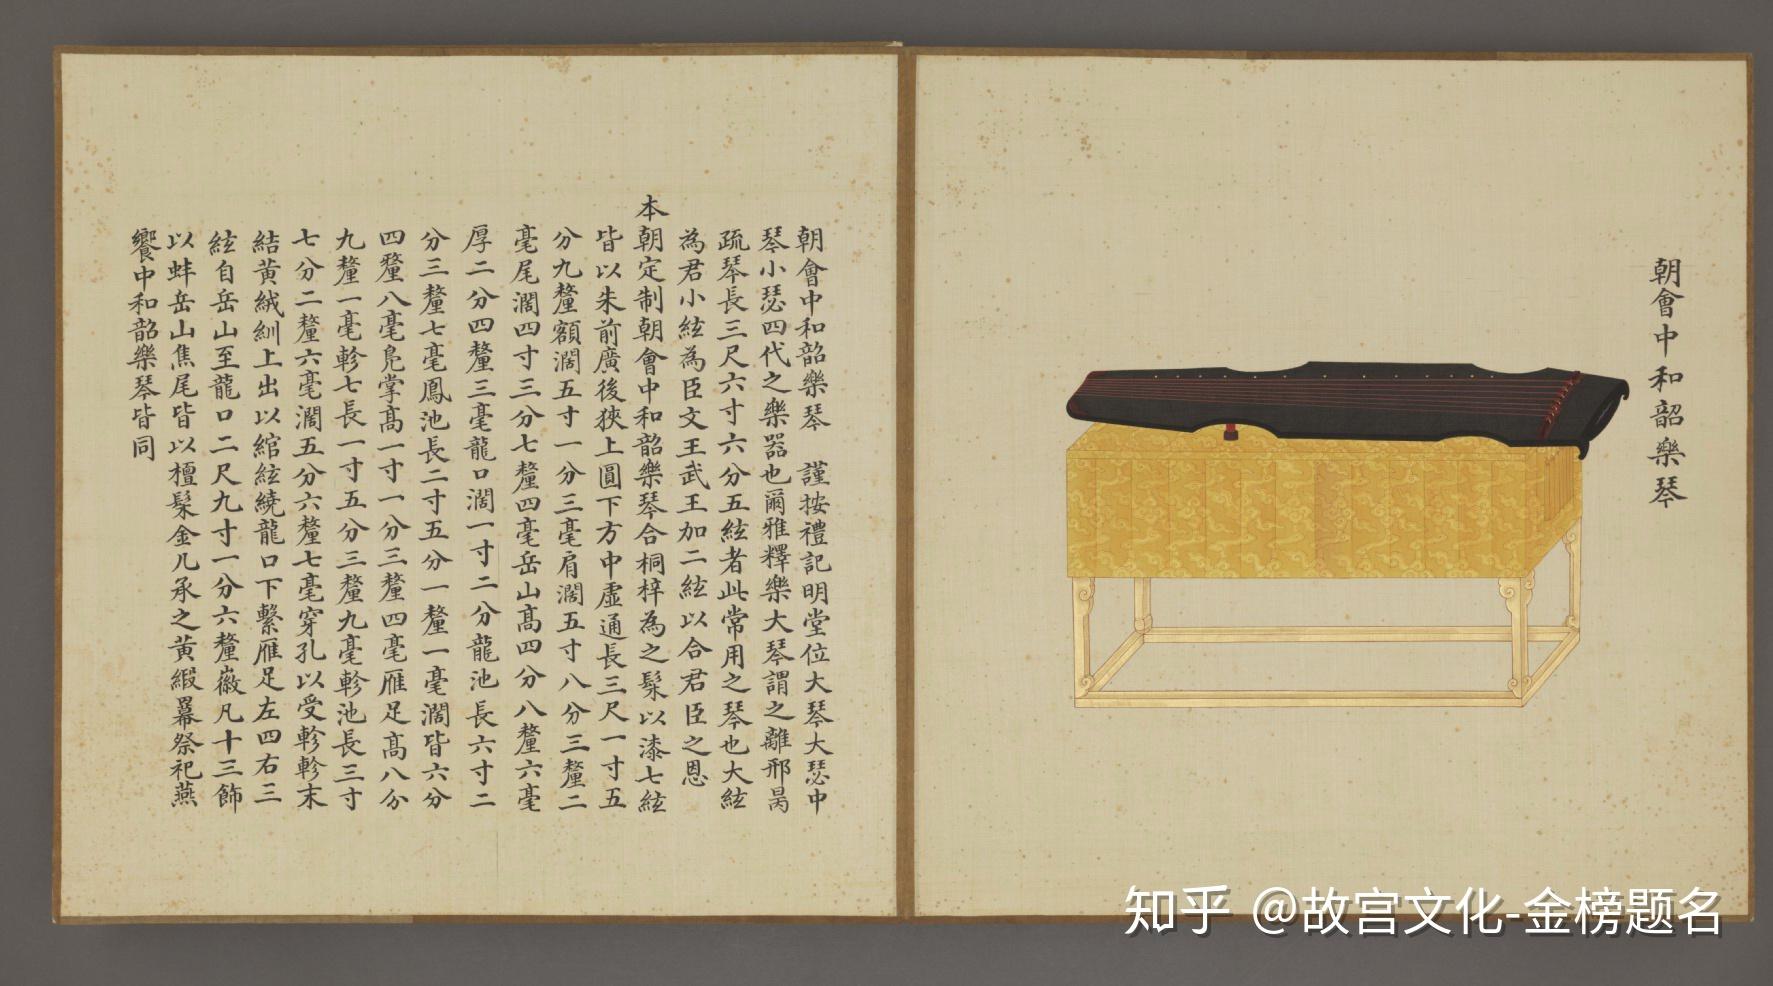 朝會中和韶樂琴
朝會中和韶樂琴 謹按禮記明堂位大琴大瑟中
琴小瑟四代之樂器也爾雅釋樂大琴謂之離邢昺
疏琴長三尺六寸六分五絃者此常用之琴也大絃
為君小絃為臣文王武王加二絃以合君臣之恩
本朝定制朝會中和韶樂琴合桐梓為之髹以漆七絃
皆以朱前廣後狹上圓下方中虛通長三尺一寸五
分九釐額濶五寸一分三毫肩濶五寸八分三釐二
毫尾濶四寸三分七釐四毫岳山髙四分八釐六毫
厚二分四釐三毫龍口濶一寸二分龍池長六寸二
分三釐七毫鳳池長二寸五分一釐一毫濶皆六分
四釐八毫鳬掌髙一寸一分三釐四毫雁足髙八分
九釐一毫軫七長一寸五分三釐九毫軫池長三寸
七分二釐六毫濶五分六釐七毫穿孔以受軫軫末
結黃絨紃上出以綰絃繞龍口下繫雁足左四右三
絃自岳山至龍口二尺九寸一分六釐徽凡十三飾
以蚌岳山焦尾皆以檀髹金几承之黃緞羃祭祀燕
饗中和韶樂琴皆同
知乎 @故宫文化-金榜题名